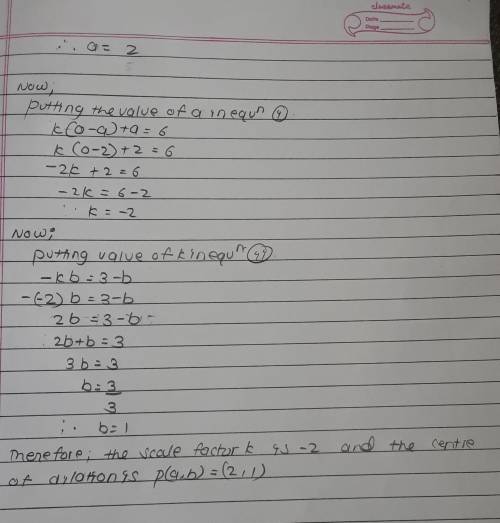 classmate
Date
Page
∴ a = 2
Now;
putting the value of a in equⁿ (i)
k(0-a)+a = 6
k(0-2)+2 = 6
-2k + 2 = 6
-2k = 6-2
∵ k = -2
Now;
putting value of k in equⁿ (ii)
-kb = 3-b
-(-2)b = 3-b
2b = 3-b
2b+b = 3
3b = 3
b = 3
3
∴ b = 1
Therefore; the scale factor k is -2 and the centre
of dilation is p(a,b) = (2,1)